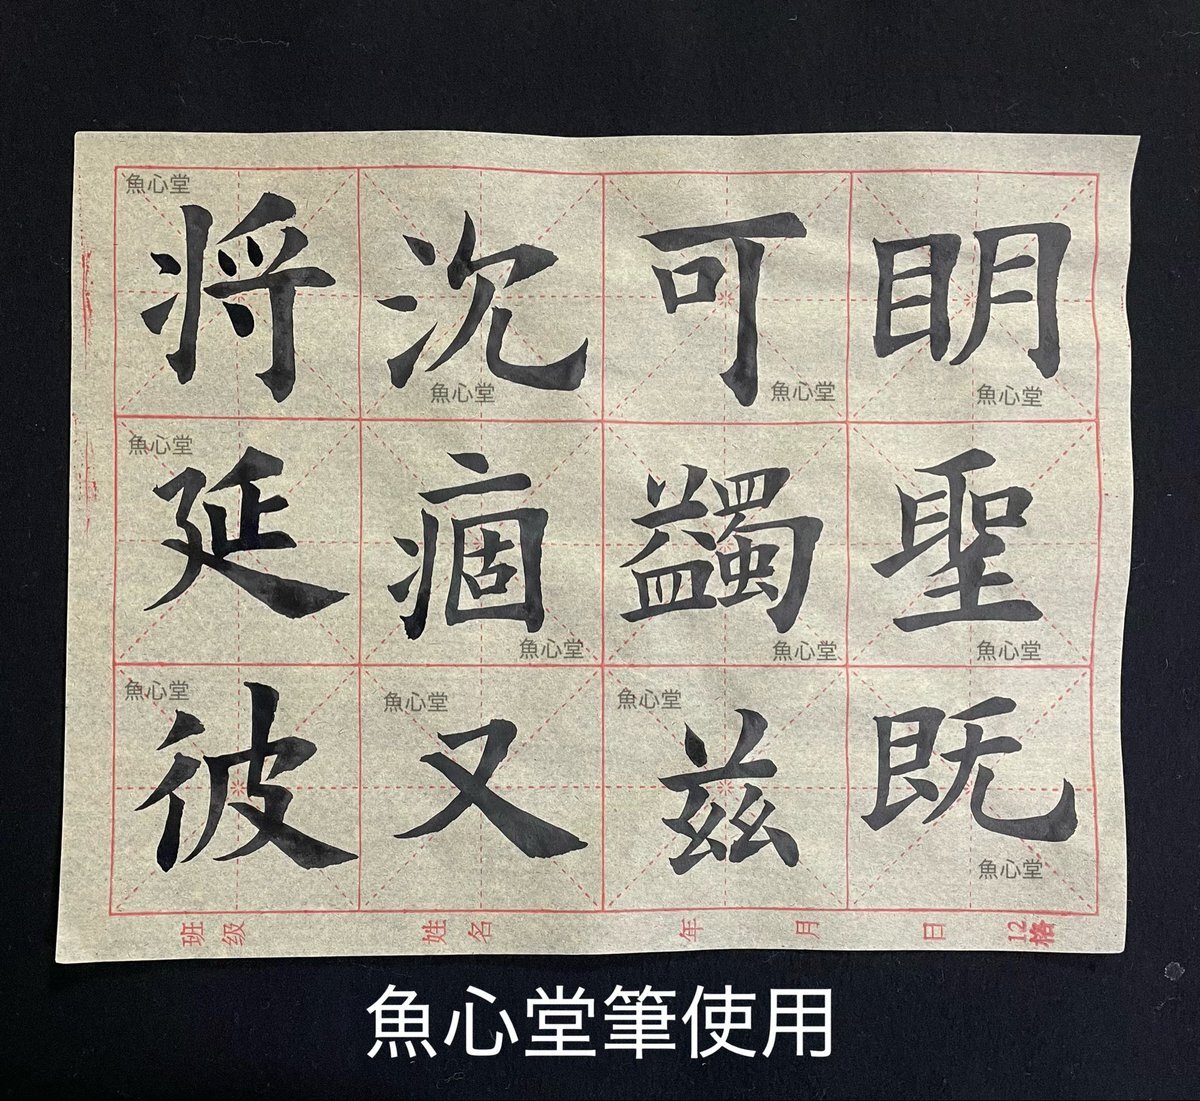 眀聖既
可蠲兹
沉痼又
将延彼
魚心堂
魚心堂
魚心堂
魚心堂
魚心堂
魚心堂
魚心堂
魚心堂
魚心堂
魚心堂
魚心堂
魚心堂
班级 姓名 年 月 日 12格
魚心堂筆使用